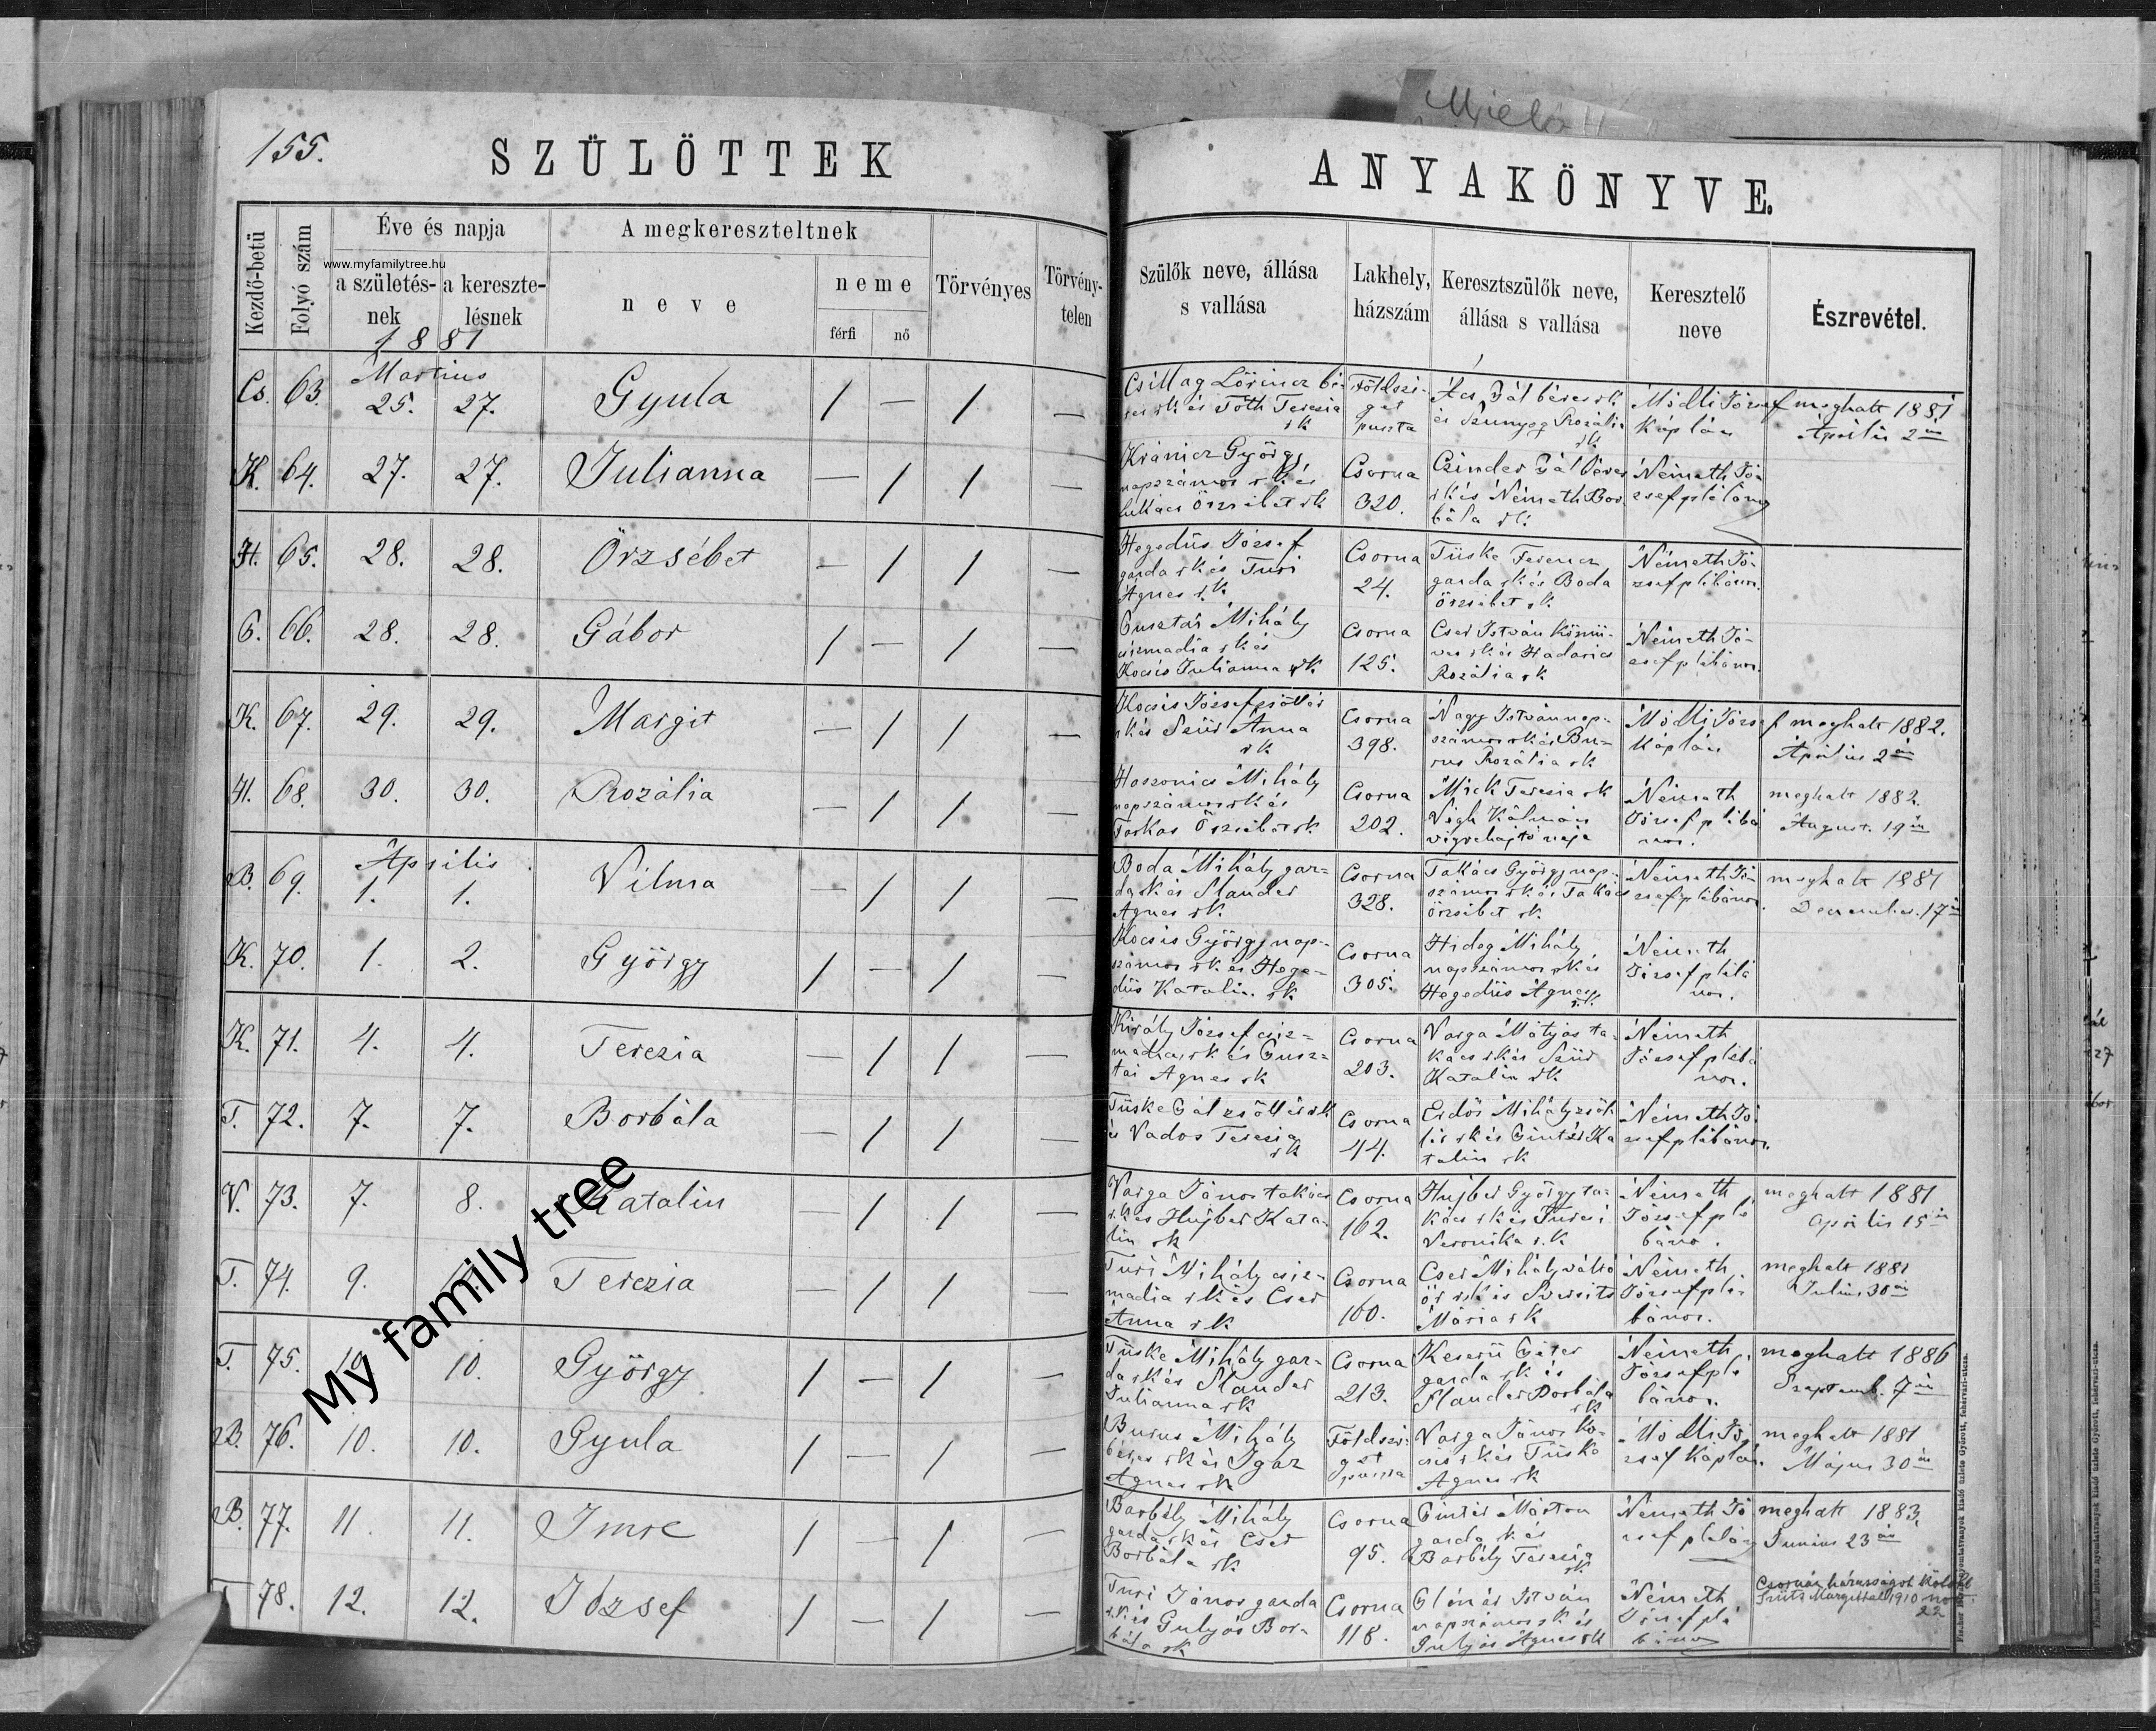 Miel
155.
SZÜLÖTTEK
ANYAKÖNYVE.
Kezdő-betü
Folyó szám
Éve és napja
a születés-
nek
a kereszte-
lésnek
1881
A megkereszteltnek
neve
neme
férfi
nő
Törvényes
Törvény-
telen
Szülők neve, állása
s vallása
Lakhely,
házszám
Keresztszülők neve,
állása s vallása
Keresztelő
neve
Észrevétel.
www.myfamilytree.hu
Martius
Cs. 63. 25. 27. Gyula / — / —
Csillag Lőrincz bé-
res rk és Tóth Terezia
rk
Földszi-
get
puszta
Ács Pál béres rk
és Szunyog Rozália
rk
Módli József
Káplán
meghalt 1881
Április 2án
K. 64. 27. 27. Julianna — / / —
Kránicz György
napszámos rk és
Lukács Örzsébet rk
Csorna
320.
Czinder Pál béres
rk és Németh Bor
bála rk
Németh Jó
zsef plébános
H. 65. 28. 28. Örzsébet — / / —
Hegedüs József
garda rk és Turi
Ágnes rk
Csorna
24.
Tüske Ferencz
garda rk és Boda
Örzsébet rk
Németh Jó-
zsef plébános.
66. 28. 28. Gábor / — / —
Mihály
csizmadia rk és
Kocsis Julianna rk
Csorna
125.
Cser István Kömü-
ves rk és Hadarics
Rozália rk
Németh Jó-
zsef plébános.
K. 67. 29. 29. Margit — / / —
Kocsis József zsöllér
rk és Szür Anna
rk
Csorna
398.
Nagy István nap-
számos rk és Bu-
rus Rozália rk
Módli József
Káplán
meghalt 1882.
Április 2án
H. 68. 30. 30. Rozália — / / —
Hoszonics Mihály
napszámos rk és
Farkas Örzsébet rk
Csorna
202.
Mick Terezia rk
Végh Kálmán
végrehajtó neje
Németh
József plébá
nos.
meghalt 1882.
August. 19én
Április
B. 69. 1. 1. Vilma — / / —
Boda Mihály gar-
da rk és Slander
Agnes rk
Csorna
328.
Takács György nap-
számos rk és Takács
Örzsébet rk
Németh Jó-
zsef plébános.
meghalt 1881
December. 17én
K. 70. 1. 2. György / — / —
Kocsis György nap-
számos rk és Hege-
düs Katalin. rk
Csorna
305.
Hideg Mihály
napszámos rk és
Hegedüs Ágnes
rk
Németh
József plébá
nos.
K. 71. 4. 4. Terezia — / / —
Király József csiz-
madia rk és Gusz-
tái Agnes rk
Csorna
203.
Varga Mátyás ta-
kács rk és Szür
Katalin rk
Németh
József plébá
nos.
T. 72. 7. 7. Borbála — / / —
Tüske Gál zsöllér rk
és Vados Terezia
rk
Csorna
44.
Erdős Mihály zsöl
lér rk és Gintér Ka
talin rk
Németh Jó
zsef plébános.
V. 73. 7. 8. Katalin — / / —
Varga János takács
rk és Hujber Kata-
lin rk
Csorna
162.
Hujber György ta-
kács rk és Turcsi
Veronika r.k
Németh
József plé
bános.
meghalt 1881
április 15én
T. 74. 9. Terezia — / / —
Turi Mihály csiz-
madia rk és Cser
Anna rk
Csorna
160.
Cser Mihály váltó
őr rk és Szersits
Mária rk
Németh
József plé-
bános.
meghalt 1881
Julius 30án
T. 75. 10. 10. György / — / —
Tüske Mihály gar-
da rk és Slander
Julianna rk
Csorna
213.
Keserü Péter
garda rk és
Slander Borbála
rk
Németh
József plé
bános.
meghalt 1886
Szeptemb. 7én
B. 76. 10. 10. Gyula / — / —
Burus Mihály
béres rk és Igaz
Agnes rk
Földszi-
get
puszta
Varga János Ko-
csis rk és Tüske
Agnes rk
Módli Jó
zsef Káplán.
meghalt 1881
Május 30án
B. 77. 11. 11. Imre / — / —
Barbély Mihály
garda rk és Cser
Borbála rk
Csorna
95.
Gintér Márton
garda rk és
Barbély Terezia
rk
Németh Jó
zsef plébános
meghalt 1883,
Junius 23án
T 78. 12. 12. József / — / —
Turi János garda
rk és Gulyás Bor-
bála rk
Csorna
118.
István
napszámos rk és
Gulyás Agnes rk
Németh
József plé
bános
Csornán házasságot kötött
Margittal 1910 nov
22
My family tree